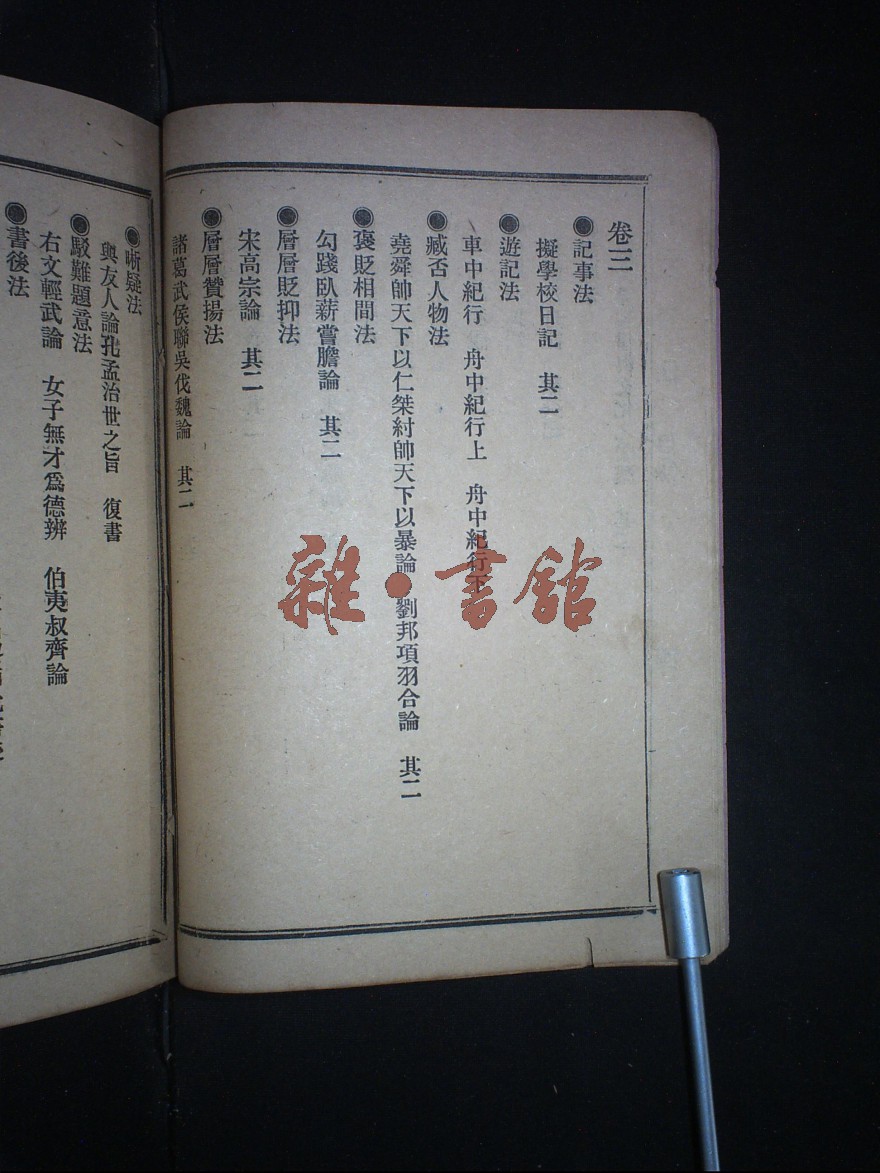 卷三
●記事法
擬學校日記　其二
●遊記法
車中紀行　舟中紀行上　舟中紀行下
●臧否人物法
堯舜帥天下以仁桀紂帥天下以暴論　劉邦項羽合論　其二
●褒貶相間法
勾踐臥薪嘗膽論　其二
●層層貶抑法
宋高宗論　其二
●層層贊揚法
諸葛武侯聯吳伐魏論　其二
●晰疑法
與友人論孔孟治世之旨　復書
●駁難題意法
右文輕武論　女子無才爲德辨　伯夷叔齊論
●書後法
雜·書館